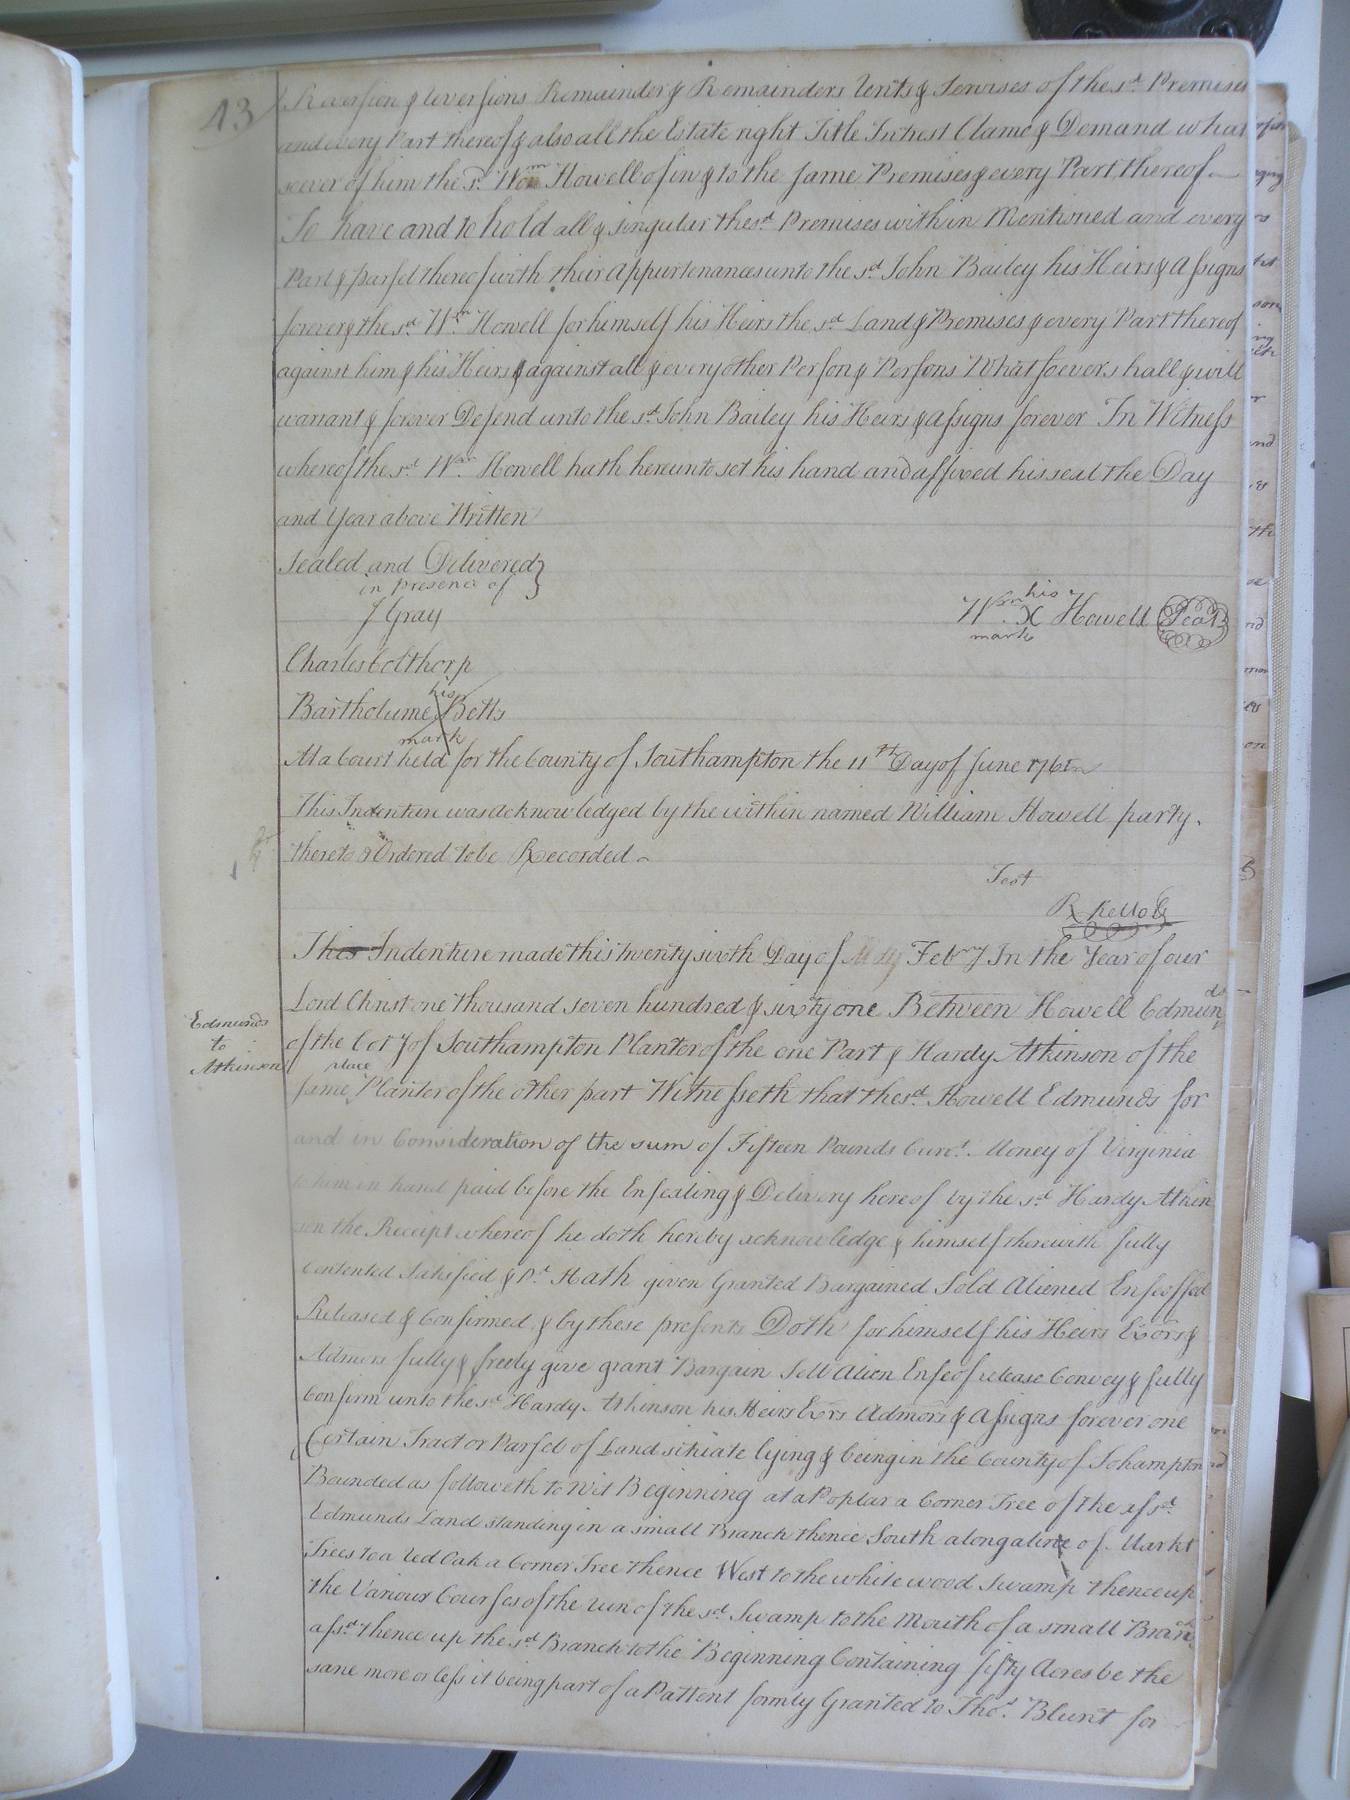 43
Reversion & Reversions Remainder & Remainders Rents & Servises of the sd. Premises
and every Part thereof & also all the Estate right Title Intrest Clame & Demand what
soever of him the sd. Wm Howell of in & to the same Premises & every Part thereof
To have and to hold all & singular the sd. Premises within Mentioned and every
Part & parsel thereof with their Appurtenances unto the sd. John Bailey his Heirs & Assigns
forever & the sd. Wm. Howell for himself his Heirs the sd. Land & Premises & every Part thereof
against him & his Heirs & against all & every other Person & Persons Whatsoever shall & will
warrant & forever Defend unto the sd. John Bailey his Heirs & assigns forever In Witness
whereof the sd. Wm. Howell hath hereunto set his hand and affixed his seal the Day
and Year above Written
Sealed and Delivered }
in presence of
J Gray
his
Wm. X Howell Seal
mark
Charles Colthorp
his
Bartholume X Betts
mark
At a Court held for the County of Southampton the 11th Day of June 1761
This Indenture was acknowledged by the within named William Howell party.
thereto & Ordered to be Recorded
Test
R Kello
This Indenture made this twenty sixth Day of Febry In the Year of our
Lord Christ one thousand seven hundred & sixty one Between Howell Edmunds
Edmunds
to
Atkinson
of the Coty of Southampton Planter of the one Part & Hardy Atkinson of the
place
same Planter of the other part Witnesseth that the sd. Howell Edmunds for
and in Consideration of the sum of Fifteen Pounds Curt. Money of Virginia
to him in hand paid before the Ensealing & Delivery hereof by the sd. Hardy Atkin
son the Receipt whereof he doth hereby acknowledge & himself therewith fully
contented Satisfied & Pd. Hath given Granted Bargained Sold Aliened Enfeoffed
Released & Confirmed & by these presents Doth for himself his Heirs Exors &
Admors fully & freely give grant Bargain Sell Alien Enfeof release Convey & fully
Confirm unto the sd. Hardy Atkinson his Heirs Exrs Admors & Assigns forever one
Certain Tract or Parsel of Land sitiate lying & being in the County of Sohampton
Bounded as followeth to Wit Beginning at a Poplar a Corner Tree of the afsd.
Edmunds Land standing in a small Branch thence South along a line of Markt
Trees to a Red Oak a Corner Tree thence West to the white wood Swamp thence up
the Various Courses of the run of the sd. Swamp to the Mouth of a small Branch
afsd. thence up the sd. Branch to the Beginning Containing fifty Acres be the
same more or less it being part of a Pattent formly Granted to Thos. Blunt for